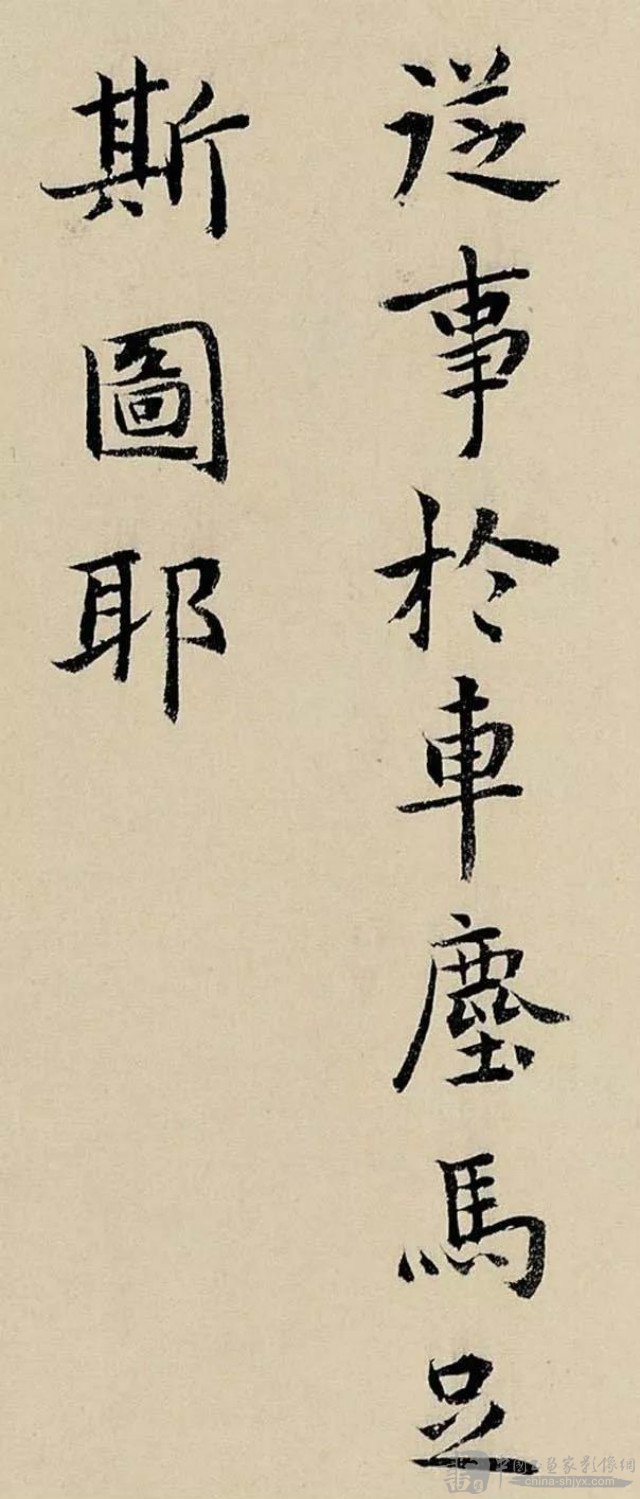 從事於車塵馬足
斯圖耶
中國书画家影像網
china-shjyx.com